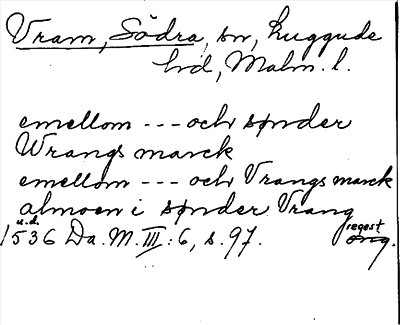 Vram, Södra, sn, Luggude
hd, Malm. l.
emellom --- och sønder
Wrangs marck
emellom --- och Vrangs marck
almoen i sønder Vrang
u.d.
1536 Da. M. III: 6, s. 97. regest
orig.